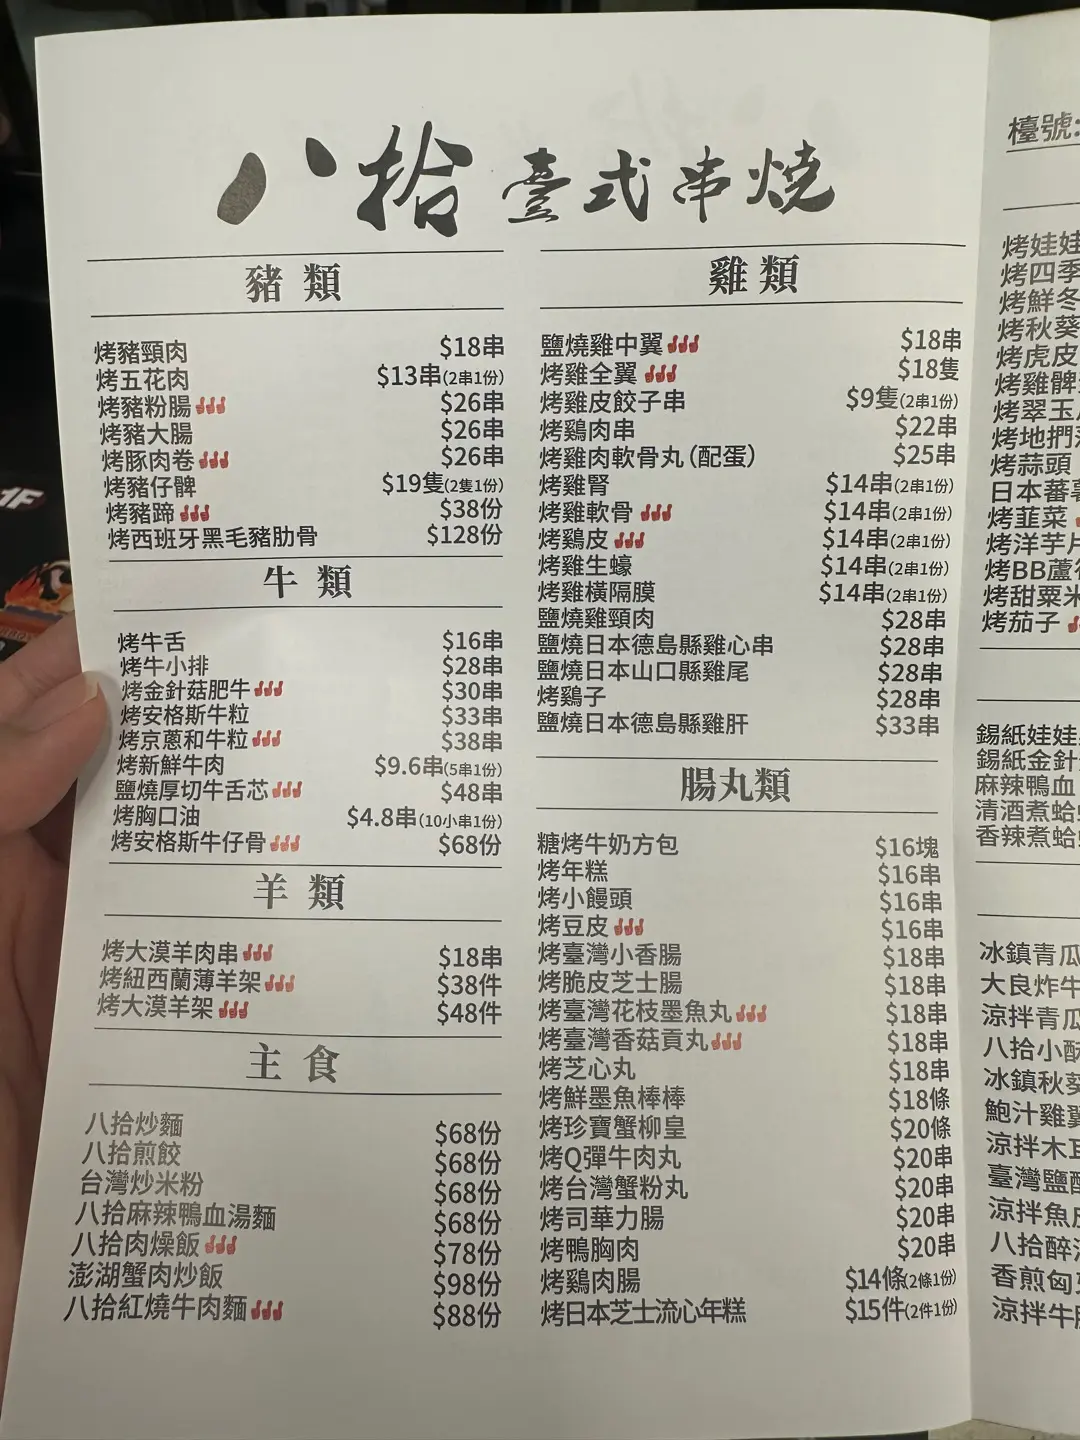 八拾壹式串燒
豬類
烤豬頸肉 $18串
烤五花肉 $13串(2串1份)
烤豬粉腸 $26串
烤豬大腸 $26串
烤豚肉卷 $26串
烤豬仔髀 $19隻(2隻1份)
烤豬蹄 $38份
烤西班牙黑毛豬肋骨 $128份
牛類
烤牛舌 $16串
烤牛小排 $28串
烤金針菇肥牛 $30串
烤安格斯牛粒 $33串
烤京蔥和牛粒 $38串
烤新鮮牛肉 $9.6串(5串1份)
鹽燒厚切牛舌芯 $48串
烤胸口油 $4.8串(10小串1份)
烤安格斯牛仔骨 $68份
羊類
烤大漠羊肉串 $18串
烤紐西蘭薄羊架 $38件
烤大漠羊架 $48件
主食
八拾炒麵 $68份
八拾煎餃 $68份
台灣炒米粉 $68份
八拾麻辣鴨血湯麵 $68份
八拾肉燥飯 $78份
澎湖蟹肉炒飯 $98份
八拾紅燒牛肉麵 $88份
雞類
鹽燒雞中翼 $18串
烤雞全翼 $18隻
烤雞皮餃子串 $9隻(2串1份)
烤鷄肉串 $22串
烤雞肉軟骨丸(配蛋) $25串
烤雞腎 $14串(2串1份)
烤雞軟骨 $14串(2串1份)
烤鷄皮 $14串(2串1份)
烤雞生蠔 $14串(2串1份)
烤雞橫隔膜 $14串(2串1份)
鹽燒雞頸肉 $28串
鹽燒日本德島縣雞心串 $28串
鹽燒日本山口縣雞尾 $28串
烤鷄子 $28串
鹽燒日本德島縣雞肝 $33串
腸丸類
糖烤牛奶方包 $16塊
烤年糕 $16串
烤小饅頭 $16串
烤豆皮 $16串
烤臺灣小香腸 $18串
烤脆皮芝士腸 $18串
烤臺灣花枝墨魚丸 $18串
烤臺灣香菇貢丸 $18串
烤芝心丸 $18串
烤鮮墨魚棒棒 $18條
烤珍寶蟹柳皇 $20條
烤Q彈牛肉丸 $20串
烤台灣蟹粉丸 $20串
烤司華力腸 $20串
烤鴨胸肉 $20串
烤鷄肉腸 $14條(2條1份)
烤日本芝士流心年糕 $15件(2件1份)
檯號:
烤娃娃
烤四季
烤鮮冬
烤秋葵
烤虎皮
烤雞髀
烤翠玉
烤地捫
烤蒜頭
日本蕃薯
烤韮菜
烤洋芋片
烤BB蘆
烤甜粟米
烤茄子
錫紙娃娃
錫紙金針
麻辣鴨血
清酒煮蛤
香辣煮蛤
冰鎮青瓜
大良炸牛
涼拌青瓜
八拾小酥
冰鎮秋葵
鮑汁雞翼
涼拌木耳
臺灣鹽酥
涼拌魚皮
八拾醉
香煎匈
涼拌牛
1F